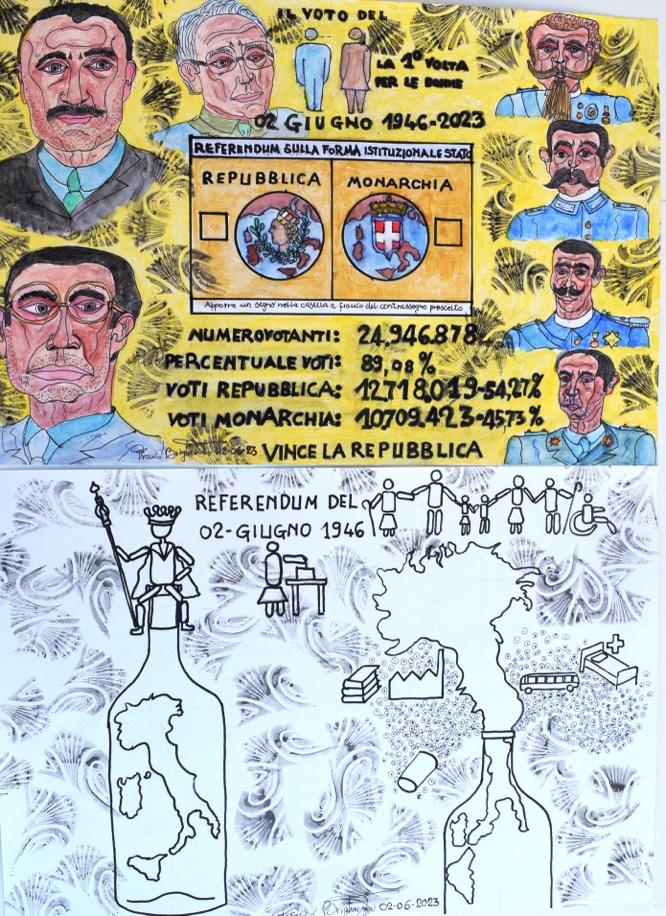 IL VOTO DEL
LA 1º VOLTA
PER LE DONNE
02 GIUGNO 1946-2023
REFERENDUM SULLA FORMA ISTITUZIONALE STATO
REPUBBLICA
MONARCHIA
Apporre un segno nella casella a fianco del contrassegno prescelto
NUMEROVOTANTI: 24.946.878
PERCENTUALE VOTI: 89,08%
VOTI REPUBBLICA: 12.718.019-54,27%
VOTI MONARCHIA: 10.709.423-45,73%
02-06-23
VINCE LA REPUBBLICA
REFERENDUM DEL
02-GIUGNO 1946
02-06-2023